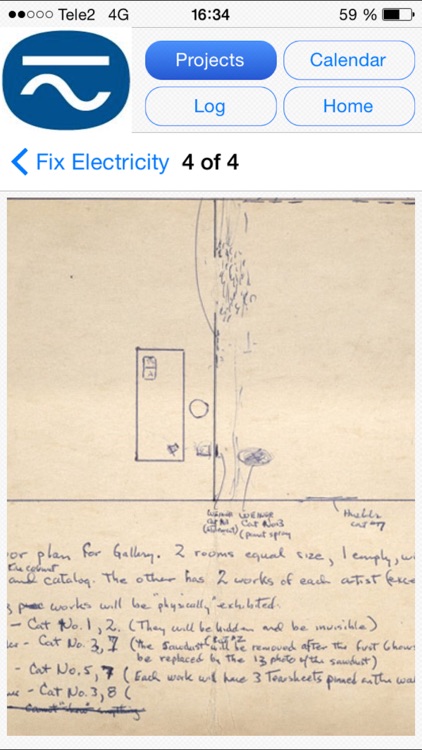 Tele2 4G 16:34 59 %
Projects Calendar
Log Home
Fix Electricity 4 of 4
WEINER WEINER
Cat No. 3
(paint spray
Huebler
cat 7
or plan for Gallery. 2 rooms equal size, 1 empty, w
and catalog. The other has 2 works of each artist (exce
works will be "physically" exhibited.
- Cat No. 1, 2. (They will be hidden and be invisible)
- Cat No. 3, 7 (the Sawdust will be removed after the first 6 hours
be replaced by the photo of the sawdust)
- Cat No. 5, 7 (Each work will have 3 Tearsheets pinned on the wa
- Cat No. 3, 8 (